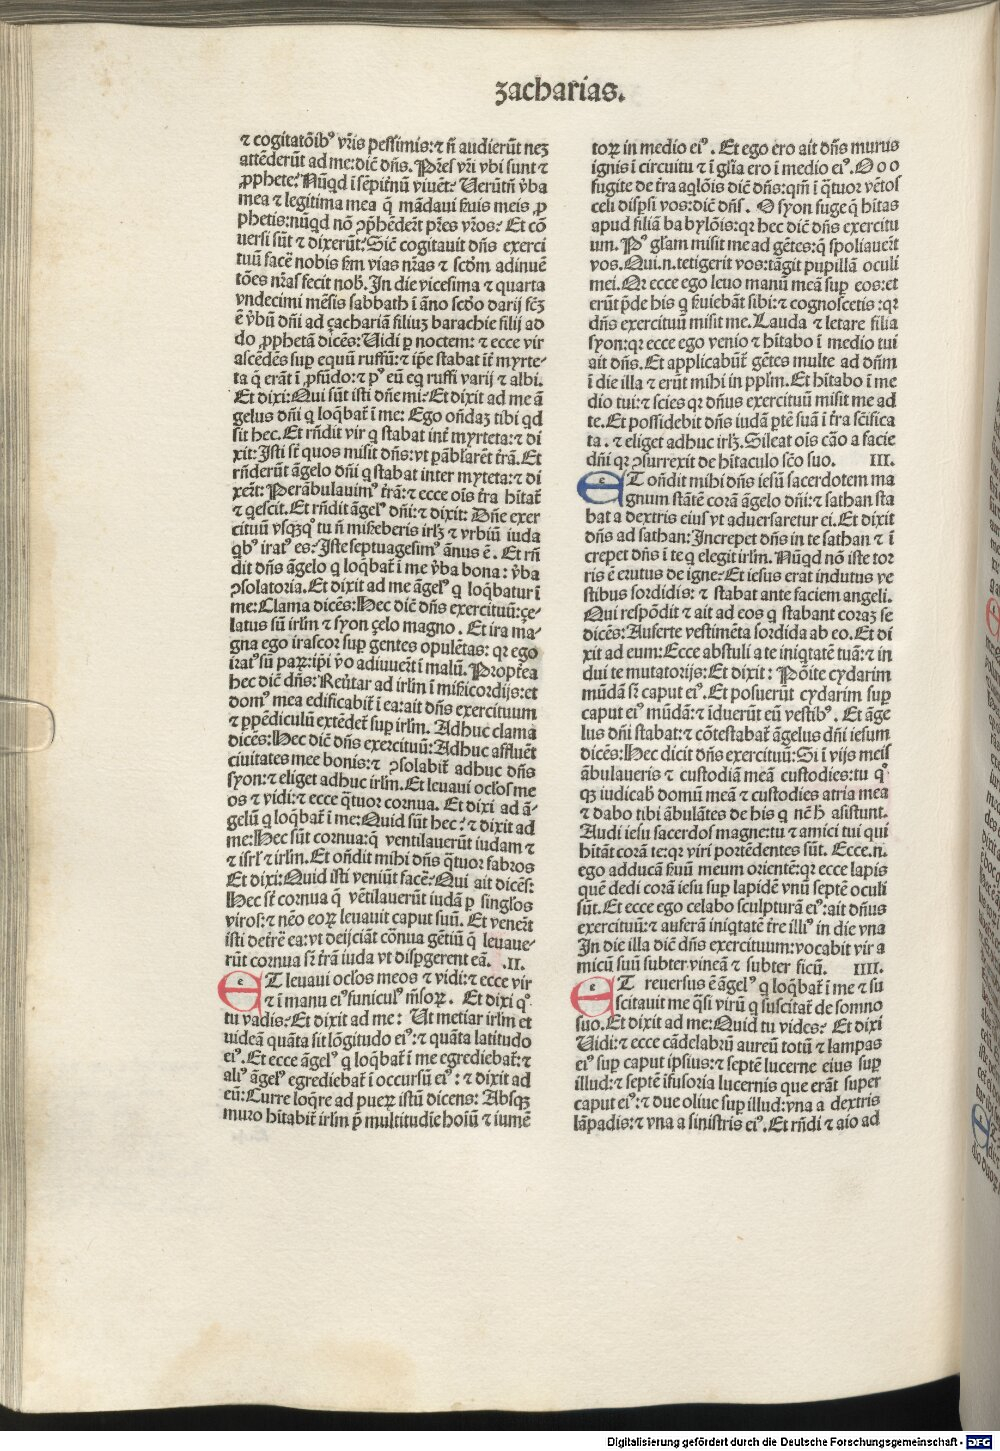 zacharias.
⁊ cogitatōibꝰ vr̄is pessimis:⁊ nō audierūt neꝫ
attēderūt ad me:dic̄ dn̄s. Pr̄es vr̄i vbi sunt ⁊
ꝓphete? Nūqd ī sēpitnū viuēt? Uerūtn̄ v̄ba
mea ⁊ legitima mea q̄ mādaui ẜuis meis ꝓ
phetis:nūqd nō ↄp̄hēdert̄ pr̄es vr̄os? Et cō
uersi sūt ⁊ dixerūt: Sic̄ cogitauit dn̄s exerci
tuū facē nobis ẜm vias nr̄as ⁊ scd̄m adinuē
tōes nr̄as fecit nob̄. In die vicesima ⁊ quarta
vndecimi mēsis sabbath ī āno scd̄o darij fc̄ꝫ
ē v̄bū dn̄i ad çachariā filiuꝫ barachie filij ad
do ꝓphetā dicēs: Uidi ꝑ noctem: ⁊ ecce vir
ascēdēs suꝑ equū ruffū:⁊ ip̄e stabat īt̄ myrte-
ta q̄ erāt ī ꝓfūdo: ⁊ pꝰ eū eq̄ ruffi varij ⁊ albi.
Et dixi: Qui sūt isti dn̄e mi? Et dixit ad me ā
gelus dn̄i q̄ loqb̄at̄ ī me: Ego ondaꝫ tibi qd
sit hec. Et rn̄dit vir q stabat int̄ myrteta:⁊ di
xit: Isti st̄ quos misit dn̄s:vt ꝑāblarēt t̄rā. Et
rn̄derūt āgelo dn̄i q stabat inter myteta:⁊ di
xert̄: Perābulauimꝰ t̄rā:⁊ ecce ois t̄ra hitat̄
⁊ qescit. Et rn̄dit āgelꝰ dn̄i:⁊ dixit: Dn̄e exer
cituū vsqꝫqꝰ tu n̄ miẜeberis irlꝫ ⁊ vrbiū iuda
qbꝰ iratꝰ es? Iste septuagesimꝰ ānus ē. Et rn̄
dit dn̄s āgelo q loqb̄at̄ ī me v̄ba bona: v̄ba
ↄsolatoria. Et dixit ad me āgelꝰ q loqb̄atur ī
me: Clama dicēs: Hec dic̄ dn̄s exercituū:çe-
latus sū irlm̄ ⁊ syon çelo magno. Et ira ma-
gna ego irascor suꝑ gentes opulētas: qr ego
iratꝰ sū paꝝ:ip̄i v̄o adiuuert̄ ī malū. Propt̄ea
hec dic̄ dn̄s: Reuertar ad irlm̄ ī mīcordijs:et
domꝰ mea edificabit̄ ī ea:ait dn̄s exercituum
⁊ ꝑpēdiculū extēdet̄ suꝑ irlm̄. Adhuc clama
dicēs: Hec dic̄ dn̄s exercituū: Adhuc affluēt
ciuitates mee bonis:⁊ ↄsolabit̄ adhuc dn̄s
syon:⁊ eliget adhuc irlm̄. Et leuaui ocl̄os me
os ⁊ vidi:⁊ ecce q̄tuor cornua. Et dixi ad ā-
gelū q loqb̄at̄ ī me: Quid sūt hec? ⁊ dixit ad
me: Hec sūt cornua:q̄ ventilauerūt iudam ⁊
⁊ isrl̄ ⁊ irlm̄. Et on̄dit mihi dn̄s q̄tuor fabros
Et dixi: Quid isti veniūt facē? Qui ait dicēs:
Hec st̄ cornua q̄ vētilauerūt iudā ꝑ singl̄os
viros:⁊ nēo eoꝝ leuauit caput suū. Et venert̄
isti det̄rē ea:vt deijciāt cōnua gētiū q̄ leuaue-
rūt cornua sr̄ t̄rā iuda vt disꝑgerent eā. .II.
ET leuaui ocl̄os meos ⁊ vidi:⁊ ecce vir
⁊ ī manu eiꝰ funiculꝰ m̄soꝝ. Et dixi qꝰ
tu vadis? Et dixit ad me: Ut metiar irlm̄ et
videā quāta sit lōgitudo eiꝰ:⁊ quāta latitudo
eiꝰ. Et ecce āgelꝰ q loqb̄at̄ ī me egrediebat̄:⁊
aliꝰ āgelꝰ egrediebat̄ ī occursū eiꝰ: ⁊ dixit ad
eū: Curre loq̄re ad pueꝝ istū dicens: Absqꝫ
muro hitabit̄ irlm̄ p̄ multitudīe hoīū ⁊ iumē
toꝝ in medio eiꝰ. Et ego ero ait dn̄s murus
ignis ī circuitu ⁊ ī gl̄ia ero ī medio eiꝰ. O o o
fugite de t̄ra aqlōis dic̄ dn̄s:qm̄ ī q̄tuor vētos
celi disꝑsi vos:dic̄ dn̄s. O syon fuge q̄ hītas
apud filiā babylōis:qr hec dic̄ dn̄s exercitu
um. Pꝰ gl̄am misit me ad gētes:q̄ spoliauert̄
vos. Qui.n.tetigerit vos:tāgit pupillā oculi
mei. Qr ecce ego leuo manū meā suꝑ eos:et
erūt p̄de his q ẜuiebāt sibi:⁊ cognoscetis:qr
dn̄s exercituū misit me. Lauda ⁊ letare filia
syon:qr ecce ego venio ⁊ hītabo ī medio tui
ait dn̄s. Et applicabūt̄ gētes multe ad dn̄m
ī die illa ⁊ erūt mihi in pplm̄. Et hītabo ī me
dio tui:⁊ scies qr dn̄us exercituū misit me ad
te. Et possidebit dn̄s iudā ꝑtē suā ī t̄ra sc̄ifica
ta. ⁊ eliget adhuc irlꝫ. Sileat oīs cāo a facie
dn̄i qr ↄsurrexit de hītaculo sc̄o suo. III.
ET on̄dit mihi dn̄s iesū sacerdotem ma
gnum stātē corā āgelo dn̄i:⁊ sathan sta
bat a dextris eius vt aduersaretur ei. Et dixit
dn̄s ad sathan: Increpet dn̄s in te sathan ⁊ ī
crepet dn̄s ī te q elegit irlm̄. Nūqd nō iste tor
ris ē erutus de igne? Et iesus erat indutus ve
stibus sordidis: ⁊ stabat ante faciem angeli.
Qui respōdit ⁊ ait ad eos q stabant coraꝫ se
dicēs: Auferte vestimēta sordida ab eo. Et di
xit ad eum: Ecce abstuli a te iniqtatē tuā:⁊ in
dui te mutatorijs: Et dixit: Pōite cydarim
mūdā sr̄ caput eiꝰ. Et posuerūt cydarim suꝑ
caput eiꝰ mūdā:⁊ īduerūt eū vestibꝰ. Et āge
lus dn̄i stabat:⁊ cōtestabat̄ āgelus dn̄i iesum
dicēs: Hec dicit dn̄s exercituū: Si ī vijs meis
ābulaueris ⁊ custodiā meā custodies:tu qꝰ
qꝫ iudicab̄ domū meā ⁊ custodies atria mea
⁊ dabo tibi ābulātes de his q nc̄ h̄ asistunt.
Audi iesu sacerdos magne:tu ⁊ amici tui qui
hītāt corā te:qr viri portēdentes sūt. Ecce.n.
ego adducā ẜuū meum orientē:qr ecce lapis
quē dedi corā iesu suꝑ lapidē vnū septē oculi
sūt. Et ecce ego celabo sculpturā eiꝰ:ait dn̄us
exercituū:⁊ auferā iniqtatē t̄re illiꝰ in die vna
In die illa dic̄ dn̄s exercituum:vocabit vir a
micū suū subter vineā ⁊ subter ficū. IIII.
ET reuersus ē āgelꝰ q loqb̄at̄ ī me ⁊ su
scitauit me q̄si virū q̄ suscitat̄ de somno
suo. Et dixit ad me: Quid tu vides? Et dixi
Uidi:⁊ ecce cādelabrū aureū totū ⁊ lampas
eiꝰ suꝑ caput ipsius:⁊ septē lucerne eius suꝑ
illud:⁊ septē īfusoria lucernis que erāt super
caput eiꝰ:⁊ due oliue suꝑ illud:vna a dextris
lāpadis:⁊ vna a sinistris eiꝰ. Et rn̄di ⁊ aio ad
Digitalisierung gefördert durch die Deutsche Forschungsgemeinschaft - DFG